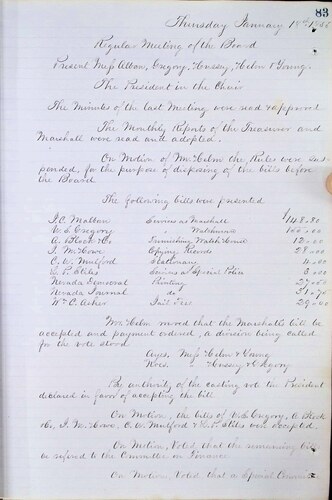 83
Thursday January
Regular Meeting of the Board
Present Messrs Alban, Gregory, Hussey, Helm & Young.
The President in the Chair
The Minutes of the last Meeting were read & approved
The Monthly Reports of the Treasurer and
Marshall were read and adopted.
On Motion of Wm Helm the Rules were sus-
pended, for the purpose of disposing of the bills before
the Board.
The following bills were presented
Services as Marshall $148.80
Gregory " Watchman 100.00
A. Block & Co Furnishing Watch House 12.00
I. M. Howe Copying Records 28.00
C. W. Mulford Stationary 4.00
Stiles Services as Special Police 3.00
Nevada Democrat Printing
Nevada Journal do
Wm C. Asher Jail Fees 29.00
Wm Helm moved that the Marshalls bill be
accepted and payment ordered, a division being called
for the vote stood
Ayes. Messrs Helm & Young
Noes. " Hussey & Gregory
By authority of the casting vote the President
declared in favor of accepting the bill.
On Motion, the bills of Gregory, A. Block
& Co, I. M. Howe, C. W. Mulford & Stiles was accepted.
On Motion, Voted, that the remaining bills
be referred to the Committee on Finance
On Motion, Voted that a Special